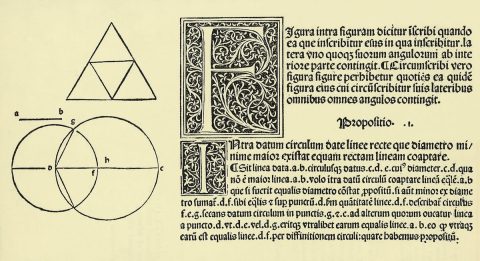 a b
g
D f h c
Figura intra figuram dicitur īscribi quando
ea que inscribitur eius in qua inscribitur.la
tera vno quoqʒ suorum angulorum ab inte
riore parte contingit. ¶Circumscribi vero
figura figure perhibetur quotiēs ea quidē
figura eius cui circūscribitur suis lateribus
omnibus omnes angulos contingit.
Propositio .1.
Intra datum circulum date linee recte que diametro mi/
nime maior existat equam rectam lineam coaptare.
¶Sit linea data.a.b.circulusqʒ datus.c.d.e.cui⁹ diameter.c.d.qua
nō ē maior linea.a.b.volo ītra datū circulū coaptare lineā eq̄lē.a.b.
que si fuerit equalis diametro cōstat ,ppositū.si aūt minor ex diame
tro sumat̄.d.f.sibi eq̄lis
f.e.g.secans datum circulum in punctis.g.e. ad alterum quorum ducatur linea a
puncto.d. vt.d.e.vel.d.g. vtralibet earum equalis linee.a.b. eo q
earū est equalis linee.d.f.per diffinitionem circuli:quare habemus propositū.